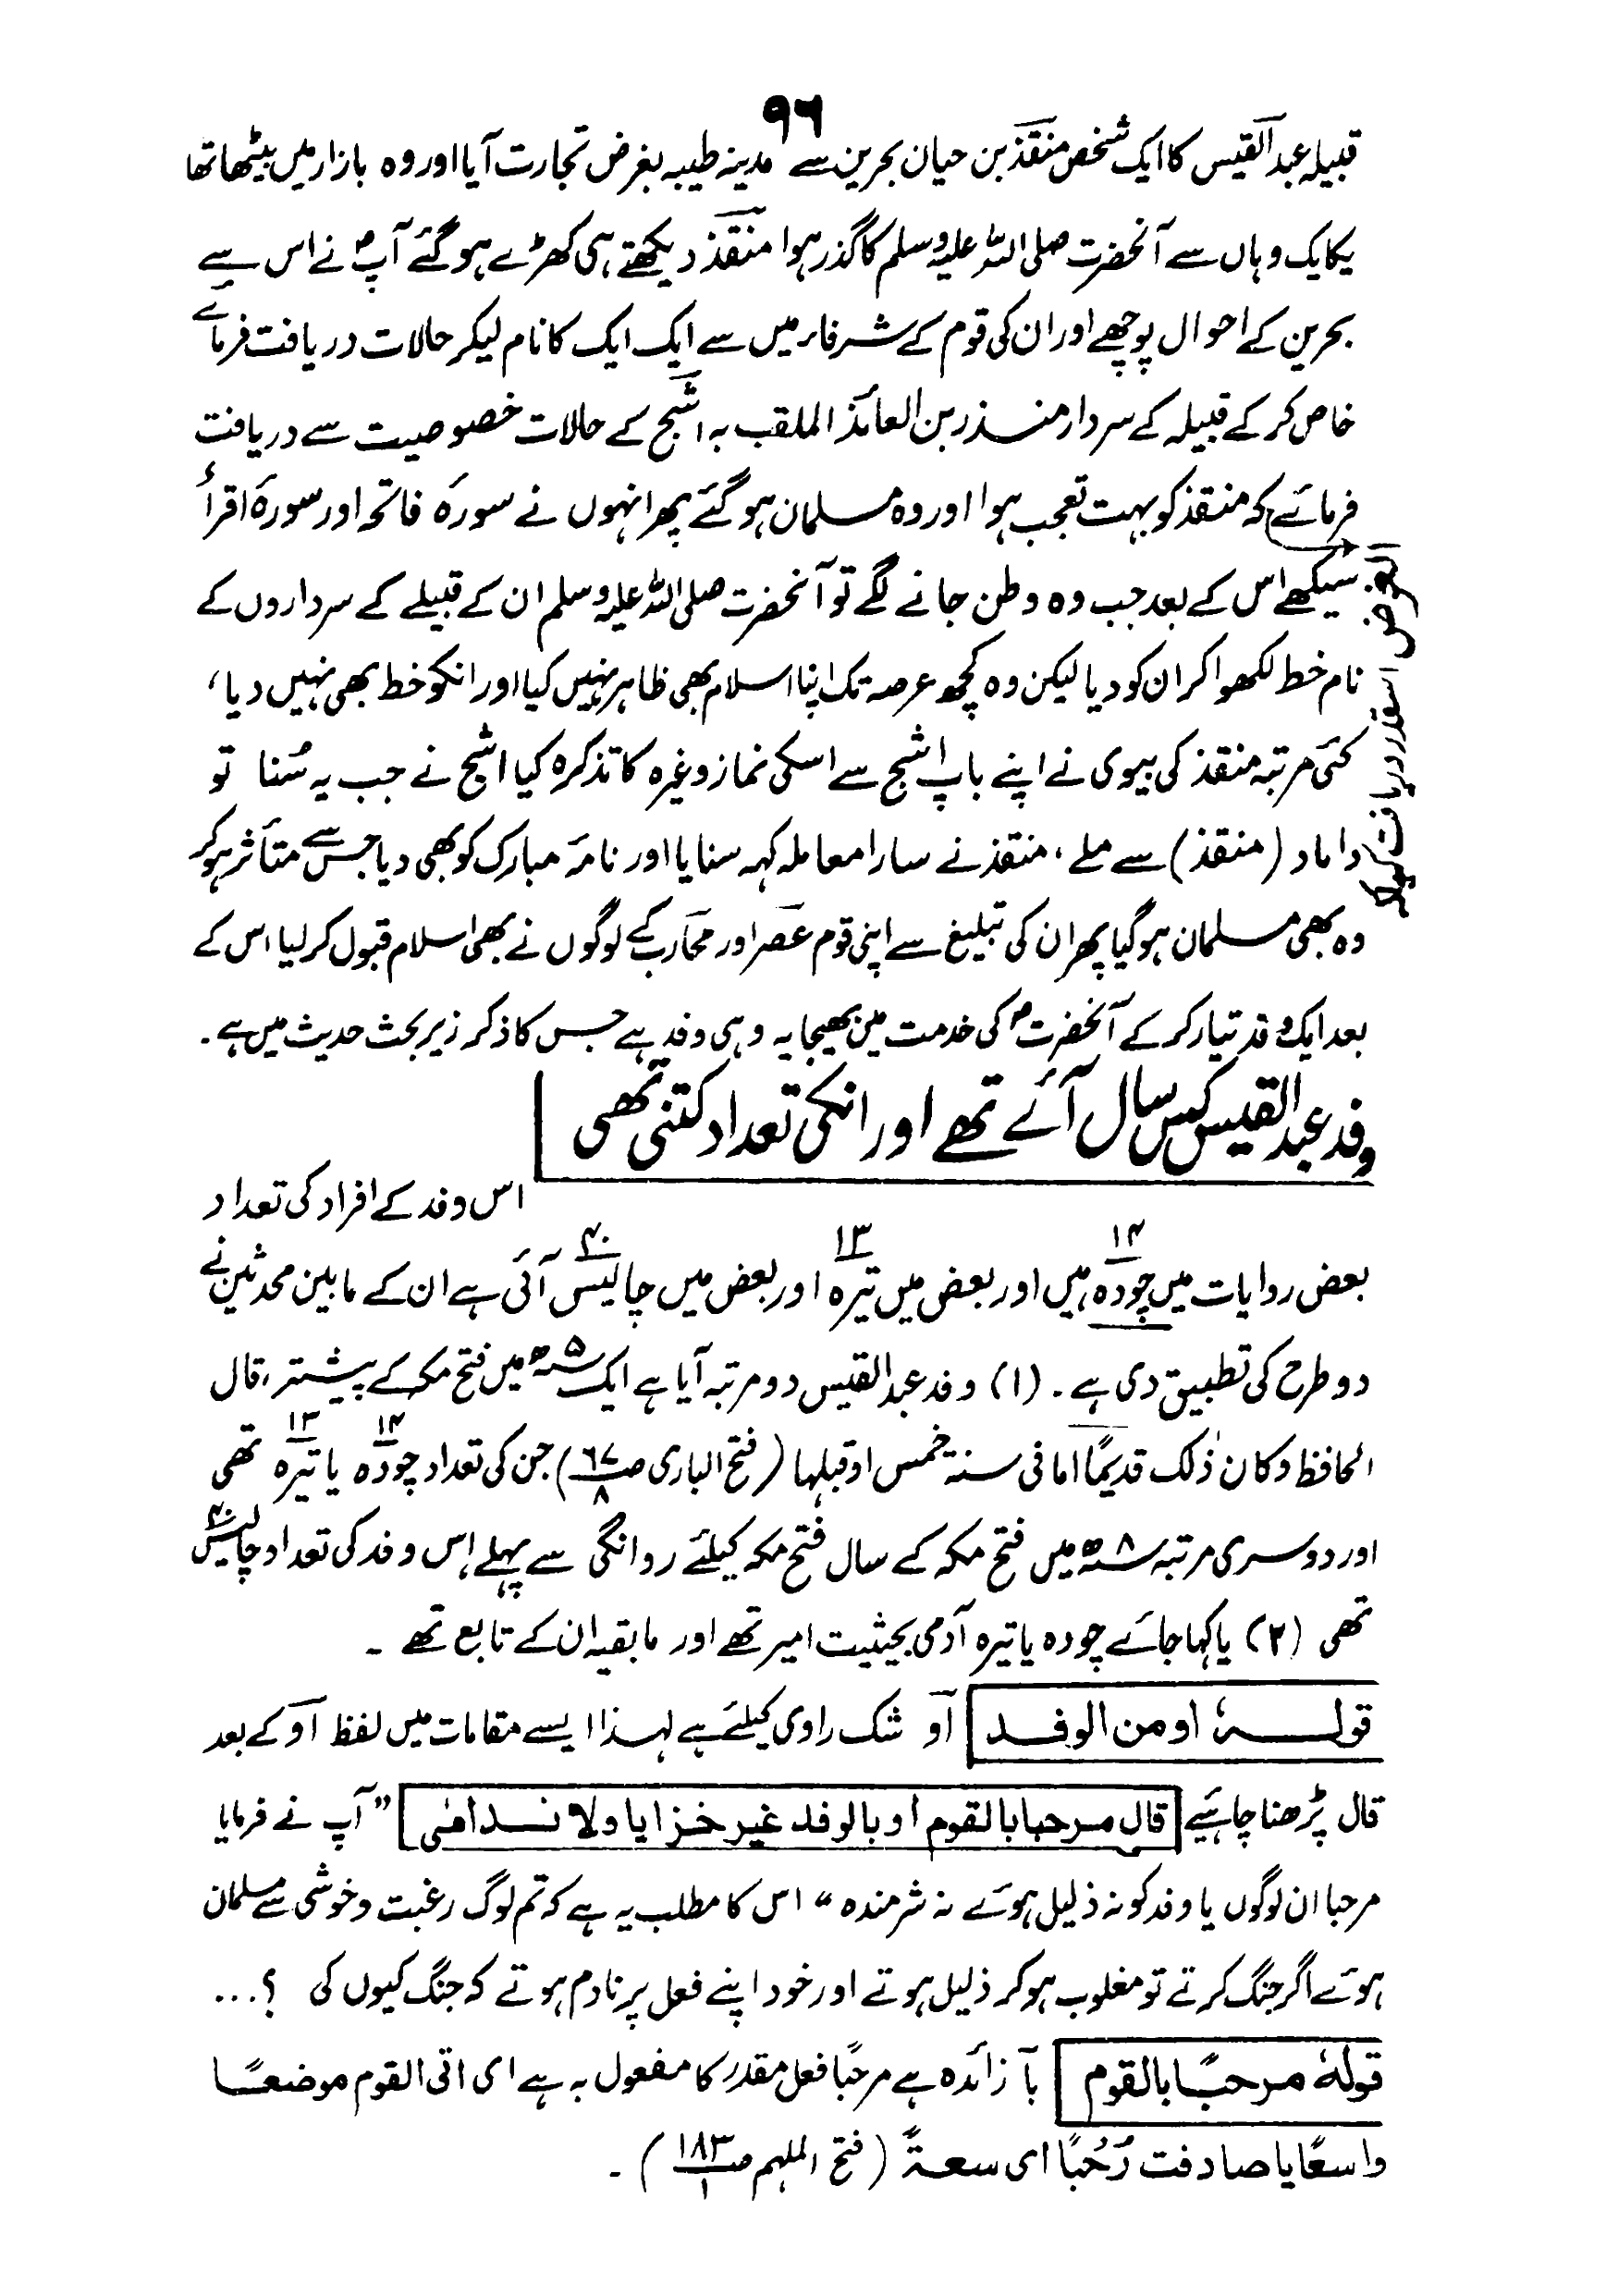 ۹۶
قبیلہ عبد القیس کا ایک شخص منقذ بن حیان بحرین سے مدینہ طیبہ بغرض تجارت آیا اور وہ بازار میں بیٹھا تھا
یکایک وہاں سے آنحضرت صلی اللہ علیہ وسلم کا گذر ہوا منقذ دیکھتے ہی کھڑے ہو گئے آپؐ نے اس سے
بحرین کے احوال پوچھے اور ان کی قوم کے شرفاء میں سے ایک ایک کا نام لیکر حالات دریافت فرمائے
خاص کر کے قبیلہ کے سردار منذر بن العائذ الملقب بہ اشج کے حالات خصوصیت سے دریافت
فرمائے کہ منقذ کو بہت تعجب ہوا اور وہ مسلمان ہو گئے پھر انہوں نے سورۂ فاتحہ اور سورۂ اقرأ
سیکھے اس کے بعد جب وہ وطن جانے لگے تو آنحضرت صلی اللہ علیہ وسلم ان کے قبیلے کے سرداروں کے
نام خط لکھوا کر ان کو دیا لیکن وہ کچھ عرصہ تک اپنا اسلام بھی ظاہر نہیں کیا اور انکو خط بھی نہیں دیا،
کئی مرتبہ منقذ کی بیوی نے اپنے باپ اشج سے اسکی نماز وغیرہ کا تذکرہ کیا اشج نے جب یہ سُنا تو
داماد (منقذ) سے ملے، منقذ نے سارا معاملہ کہہ سنایا اور نامۂ مبارک کو بھی دیا جس سے متأثر ہو کر
وہ بھی مسلمان ہو گیا پھر ان کی تبلیغ سے اپنی قوم عصر اور محارب کے لوگوں نے بھی اسلام قبول کر لیا اس کے
بعد ایک وفد تیار کر کے آنحضرتؐ کی خدمت میں بھیجا یہ وہی وفد ہے جس کا ذکر زیر بحث حدیث میں ہے۔
الغرض اسقدر دریافت
وفد عبد القیس کس سال آئے تھے اور انکی تعداد کتنی تھی
اس وفد کے افراد کی تعداد
۱۴ ۱۳ ۴۰
بعض روایات میں چودہ ہیں اور بعض میں تیرہ اور بعض میں چالیس آئی ہے ان کے مابین محدثین نے
دو طرح کی تطبیق دی ہے۔ (۱) وفد عبد القیس دو مرتبہ آیا ہے ایک ۵ھ میں فتح مکہ کے پیشتر، قال
۱۴ ۱۳
الحافظ وکان ذٰلک قدیمًا اما فی سنۃ خمس او قبلہا (فتح الباری ص۶۷/۸) جن کی تعداد چودہ یا تیرہ تھی
اور دوسری مرتبہ ۸ھ میں فتح مکہ کے سال فتح مکہ کیلئے روانگی سے پہلے اس وفد کی تعداد چالیس ۴۰
تھی (۲) یا کہا جائے چودہ یا تیرہ آدمی بحیثیت امیر تھے اور مابقیہ ان کے تابع تھے۔
قولہٗ او من الوفد آو شک راوی کیلئے ہے لہذا ایسے مقامات میں لفظ آو کے بعد
قال پڑھنا چاہئیے قال مرحبا بالقوم او بالوفد غیر خزایا ولا ندامٰی ” آپ نے فرمایا
مرحبا ان لوگوں یا وفد کو نہ ذلیل ہوئے نہ شرمندہ “ اس کا مطلب یہ ہے کہ تم لوگ رغبت و خوشی سے مسلمان
ہوئے اگر جنگ کرتے تو مغلوب ہو کر ذلیل ہوتے اور خود اپنے فعل پر نادم ہوتے کہ جنگ کیوں کی ؟...
قولہٗ مرحبًا بالقوم بآ زائدہ ہے مرحبًا فعل مقدر کا مفعول بہ ہے ای اتی القوم موضعًا
واسعًا یا صادفت رُحْبًا ای سعۃً (فتح الملہم ص۱۸۳/۱)۔